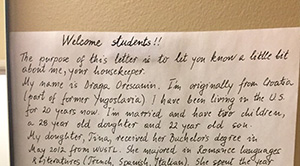 Welcome students!!
The purpose of this letter is to let you know a little bit
about me, your housekeeper.
My name is Draga Orescanin. I'm originally from Croatia
(part of former Yugoslavia) I have been living in the U.S.
for 20 years now. I'm married and have two children,
a 28 year old daughter and 22 year old son.
My daughter, Jina, received her Bachelors degree in
May 2012 from WUSTL. She majored in Romance Languages
& Literatures (French, Spanish, Italian). She spent the year